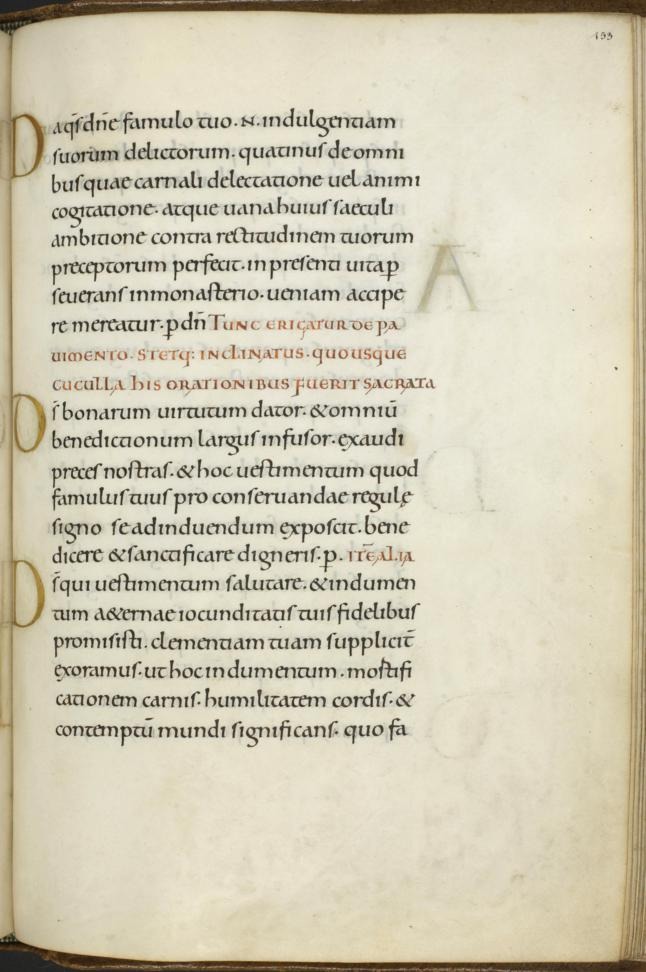 133
Da qs dn̄e famulo tuo · N · indulgentiam
suorum delictorum · quatinus de omni
bus quae carnali delectatione uel animi
cogitatione · atque uana huius saeculi
ambitione contra rectitudinem tuorum
preceptorum perfecit · in presenti uita ꝑ
seuerans in monasterio · ueniam accipe
re mereatur · ꝑ dn̄ TUNC ERIGATUR DE PA
UIMENTO · STETQ: INCLINATUS · QUOUSQUE
CUCULLA HIS ORATIONIBUS FUERIT SACRATA
Ds̄ bonarum uirtutum dator · & omniū
benedictionum largus infusor · exaudi
preces nostras · & hoc uestimentum quod
famulus tuus pro conseruandae regulę
signo se ad induendum exposcit · bene
dicere & sanctificare digneris · ꝑ · ITĒ ALIA
Ds̄ qui uestimentum salutare · & indumen
tum a&ernae iocunditatis tuis fidelibus
promisisti · clementiam tuam supplicit̄
exoramus · ut hoc indumentum · mostifi
cationem carnis · humilitatem cordis · &
contemptū mundi significans · quo fa